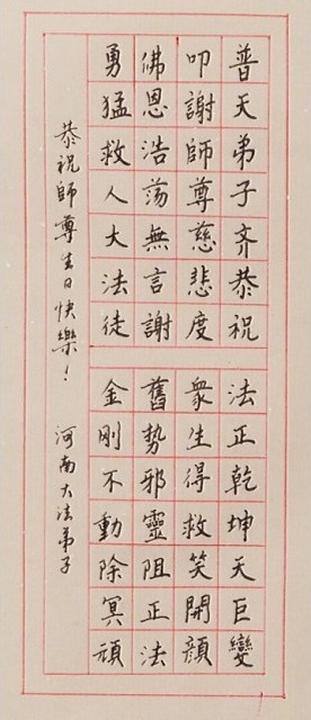 普天弟子齐恭祝
叩謝師尊慈悲度
佛恩浩蕩無言謝
勇猛救人大法徒
法正乾坤天巨變
衆生得救笑開顔
舊勢邪靈阻正法
金剛不動除冥頑
恭祝師尊生日快樂！
河南大法弟子